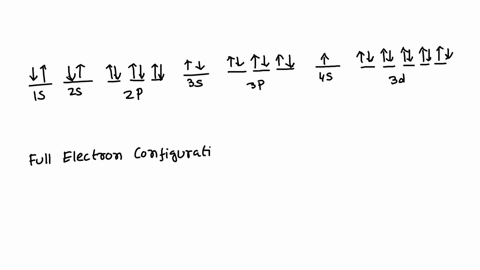 ↓↑ ↓↑ ↑↓ ↑↓ ↑↓ ↑↓ ↑↓ ↑↓ ↑↓ ↑ ↑↓ ↑↓ ↑↓ ↑↓ ↑↓
1s 2s 2p 3s 3p 4s 3d
Full Electron Configurati